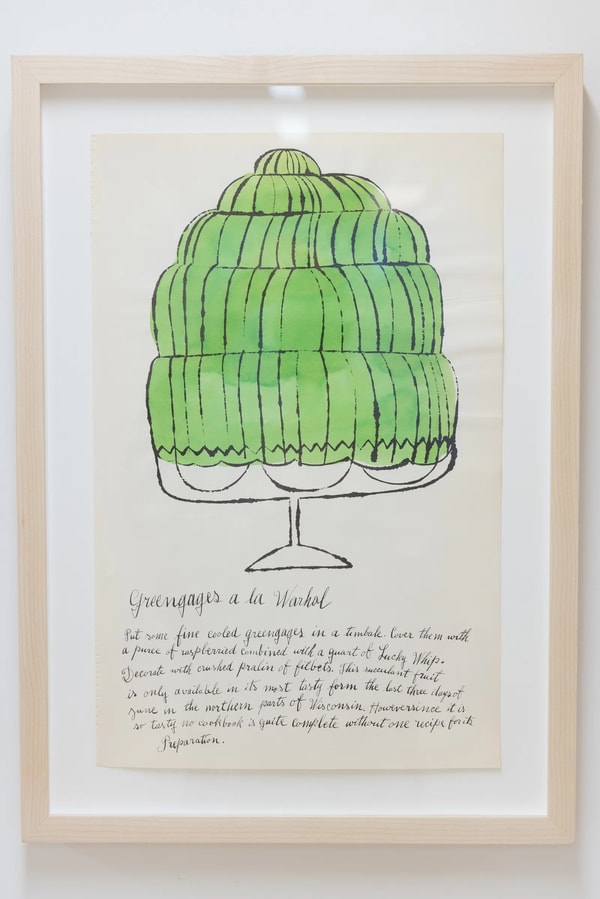 Greengages a la Warhol
Put some fine cooled greengages in a timbale. Cover them with
a puree of raspberried combined with a quart of Lucky Whip.
Decorate with crushed pralin of filberts. This succulent fruit
is only available in its most tasty form the last three days of
June in the northern parts of Wisconsin. However since it is
so tasty no cookbook is quite complete without one recipe for its
Preparation.